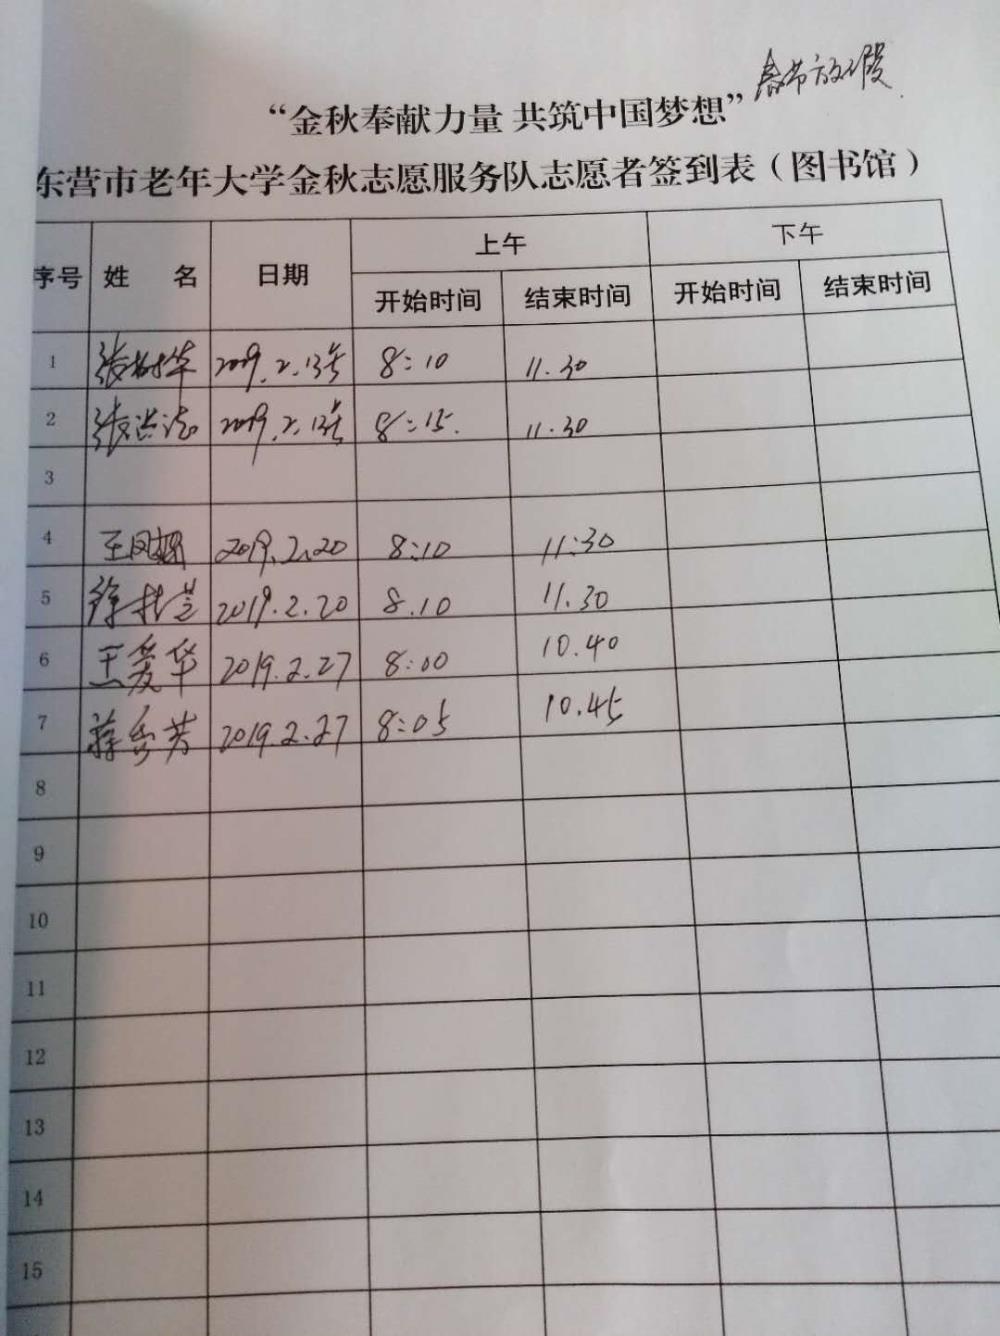 春节放假
“金秋奉献力量 共筑中国梦想”
东营市老年大学金秋志愿服务队志愿者签到表（图书馆）
序号 姓 名 日期 上午 下午
开始时间 结束时间 开始时间 结束时间
1 张树华 2019.2.13号 8:10 11.30
2 张洪 2019.2.13号 8:15. 11.30
3
4 王凤 2019.2.20 8:10 11:30
5 徐 2019.2.20 8.10 11.30
6 王爱华 2019.2.27 8:00 10.40
7 蒋秀芳 2019.2.27 8:05 10.45
8
9
10
11
12
13
14
15